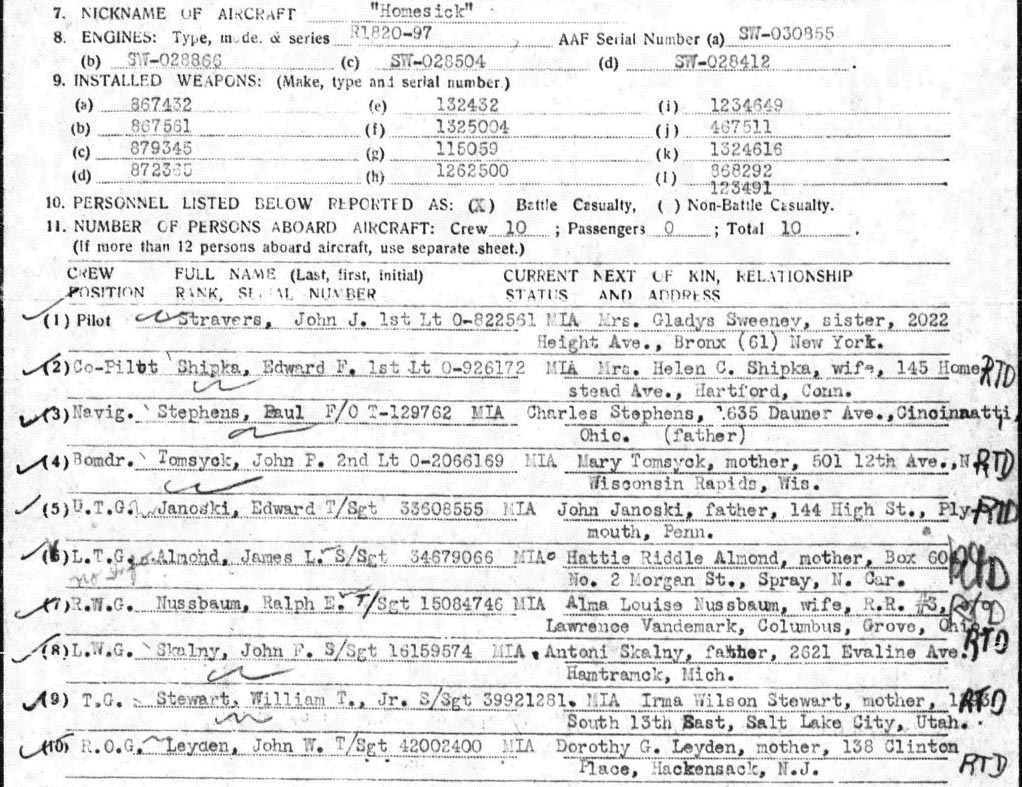 7. NICKNAME OF AIRCRAFT "Homesick"
8. ENGINES: Type, mode. & series R1820-97 AAF Serial Number (a) SW-030855
(b) SW-028866 (c) SW-028504 (d) SW-028412 .
9. INSTALLED WEAPONS: (Make, type and serial number.)
(a) 867432 (e) 132432 (i) 1234649
(b) 867561 (f) 1325004 (j) 467511
(c) 879345 (g) 115059 (k) 1324616
(d) 872365 (h) 1262500 (l) 868292
123491
10. PERSONNEL LISTED BELOW REPORTED AS: (X) Battle Casualty, ( ) Non-Battle Casualty.
11. NUMBER OF PERSONS ABOARD AIRCRAFT: Crew 10 ; Passengers 0 ; Total 10 .
(If more than 12 persons aboard aircraft, use separate sheet.)
CREW FULL NAME (Last, first, initial) CURRENT NEXT OF KIN, RELATIONSHIP
POSITION RANK, SERIAL NUMBER STATUS AND ADDRESS
(1) Pilot Stravers, John J. 1st Lt O-822561 MIA Mrs. Gladys Sweeney, sister, 2022
Height Ave., Bronx (61) New York.
(2) Co-Pilot Shipka, Edward F. 1st Lt O-926172 MIA Mrs. Helen C. Shipka, wife, 145 Home RTD
stead Ave., Hartford, Conn.
(3) Navig. Stephens, Paul F/O T-129762 MIA Charles Stephens, 1635 Dauner Ave., Cincinnatti,
Ohio. (father)
(4) Bomdr. Tomsyck, John P. 2nd Lt O-2066169 MIA Mary Tomsyck, mother, 501 12th Ave., N. RTD
Wisconsin Rapids, Wis.
(5) U.T.G. Janoski, Edward T/Sgt 33608555 MIA John Janoski, father, 144 High St., Ply- RTD
mouth, Penn.
(6) L.T.G. Almond, James L. S/Sgt 34679066 MIA Hattie Riddle Almond, mother, Box 60
No. 2 Morgan St., Spray, N. Car.
(7) R.W.G. Nussbaum, Ralph E. T/Sgt 15084746 MIA Alma Louise Nussbaum, wife, R.R. #3,
Lawrence Vandemark, Columbus, Grove, Ohio
(8) L.W.G. Skalny, John F. S/Sgt 16159574 MIA. Antoni Skalny, father, 2621 Evaline Ave. RTD
Hamtramck, Mich.
(9) T.G. Stewart, William T., Jr. S/Sgt 39921281. MIA Irma Wilson Stewart, mother, RTD
South 13th East, Salt Lake City, Utah.
(10) R.O.G. Leyden, John W. T/Sgt 42002400 MIA Dorothy G. Leyden, mother, 138 Clinton
Place, Hackensack, N.J. RTD